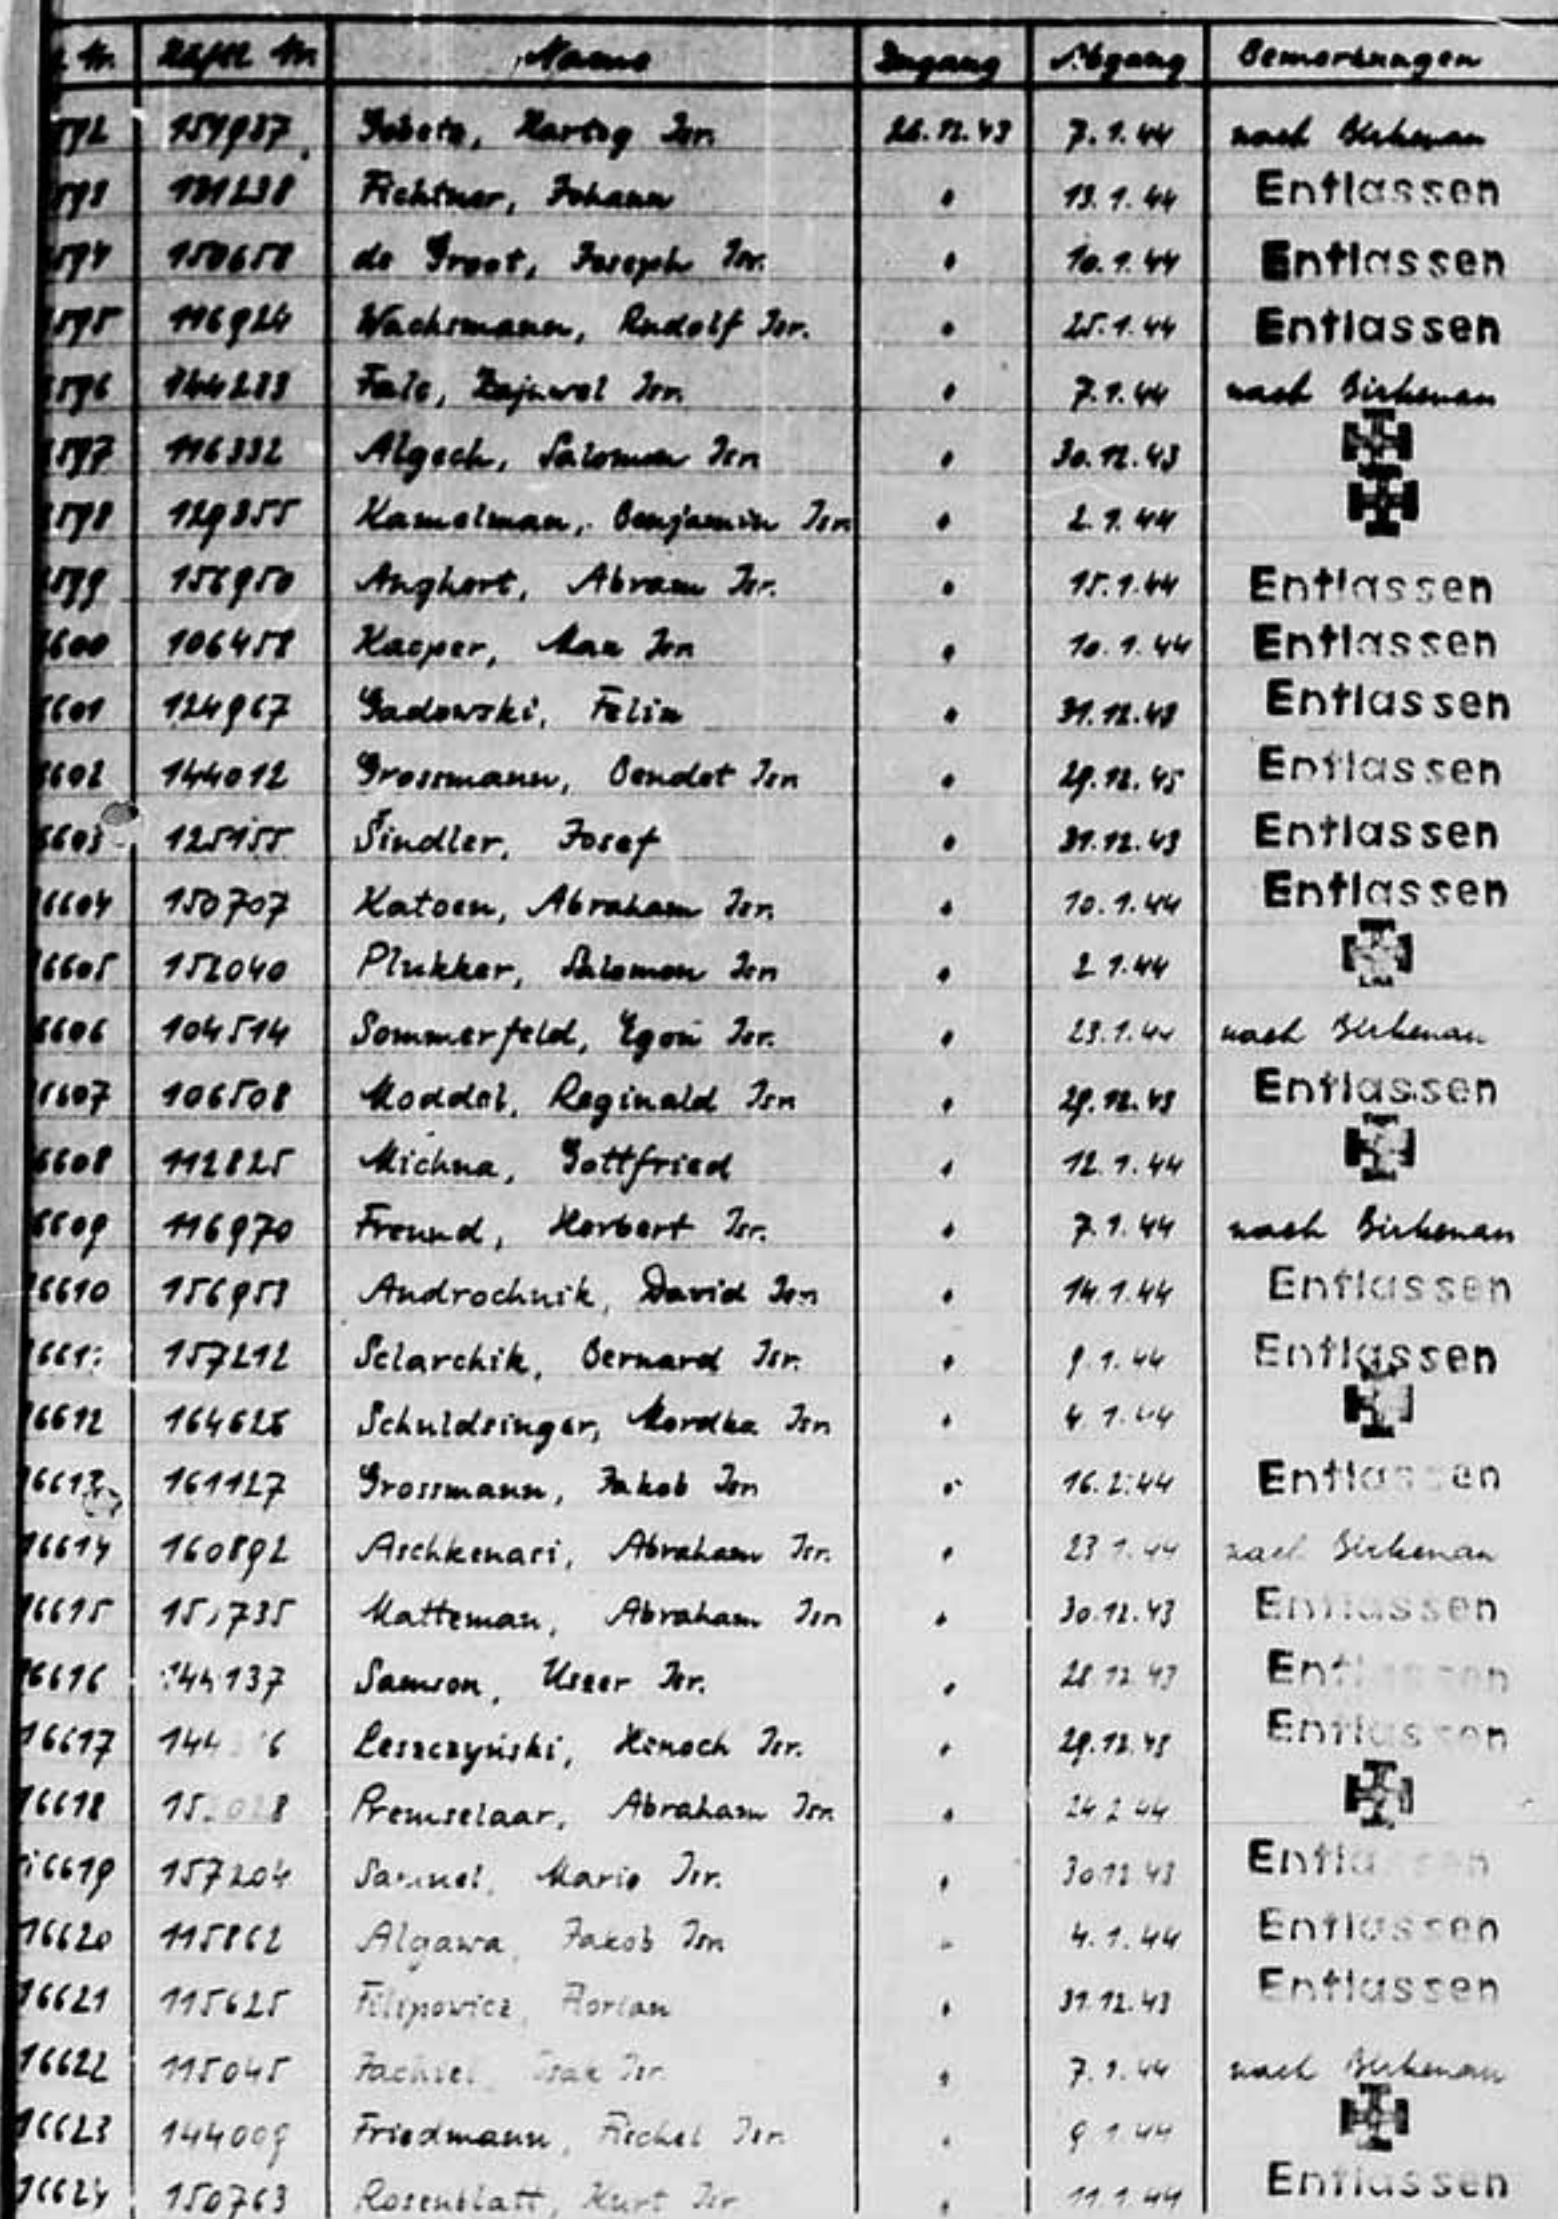 Nr. Häftl. Nr. Name Zugang Abgang Bemerkungen
592 Hartog Isr. 26.12.43 7.1.44 nach Birkenau
593 Fichtner, Johann " 13.1.44 Entlassen
594 150658 de Groot, Joseph Isr. " 10.1.44 Entlassen
595 116924 Wachsmann, Rudolf Isr. " 25.1.44 Entlassen
596 144283 " 7.1.44 nach Birkenau
597 116332 Algech, Salomon Isr. " 30.12.43
598 129855 Kamelman, Benjamin Isr. " 2.1.44
599 156950 Anghert, Abram Isr. " 15.1.44 Entlassen
6600 106458 Kasper, Max Isr. " 10.1.44 Entlassen
6601 124967 Gadowski, Felix " 31.12.43 Entlassen
6602 144012 Grossmann, Bendet Isr. " 29.12.43 Entlassen
6603 125155 Šindler, Josef " 31.12.43 Entlassen
16604 150707 Katoen, Abraham Isr. " 10.1.44 Entlassen
16605 152040 Plukker, Salomon Isr. " 2.1.44
6606 104514 Sommerfeld, Egon Isr. " 23.1.44 nach Birkenau
16607 106508 Moddel, Reginald Isr. " 29.12.43 Entlassen
6608 112825 Michna, Gottfried " 12.1.44
6609 116970 Freund, Herbert Isr. " 7.1.44 nach Birkenau
16610 156953 Androchnik, David Isr. " 14.1.44 Entlassen
1661 157212 Sclarchik, Bernard Isr. " 9.1.44 Entlassen
16612 164626 Schuldsinger, Mordka Isr. " 4.1.44
16613 161127 Grossmann, Jakob Isr. " 16.2.44 Entlassen
16614 160892 Aschkenasi, Abraham Isr. " 23.1.44 nach Birkenau
16615 Matteman, Abraham Isr. " 30.12.43 Entlassen
16616 144137 Samson, Uszer Isr. " 28.12.43 Entlassen
16617 Leszczyński, Henoch Isr. " 29.12.43 Entlassen
16618 Premselaar, Abraham Isr. " 24.2.44
16619 157204 Samuel, Mario Isr. " 30.12.43 Entlassen
16620 115862 Algawa, Jakob Isr. " 4.1.44 Entlassen
16621 115625 Filipowicz, Florian " 31.12.43 Entlassen
16622 115045 Isak Isr. " 7.1.44 nach Birkenau
16623 144009 Friedmann, Fischel Isr. " 9.1.44
16624 150763 Rosenblatt, Kurt Isr. " 11.1.44 Entlassen